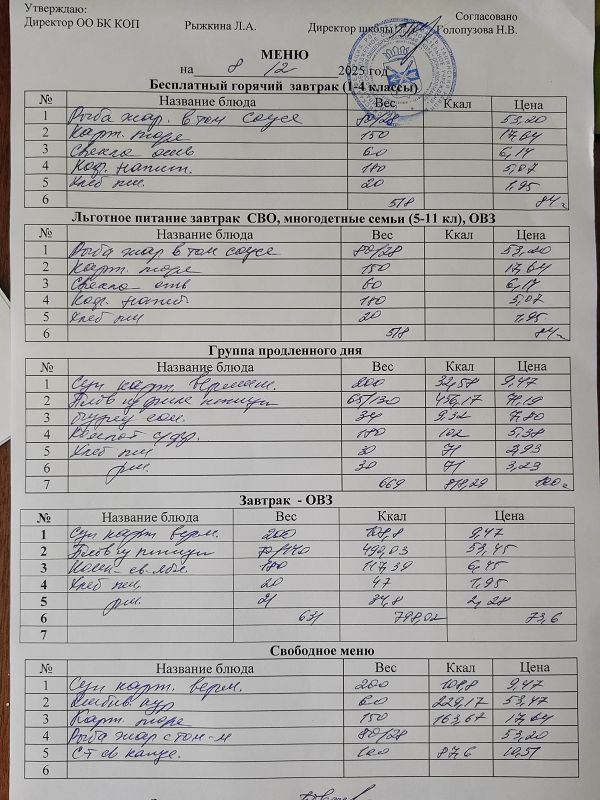 Утверждаю:
Директор ОО БК КОП Рыжкина Л.А.
Согласовано
Директор школы Голопузова Н.В.
МЕНЮ
на 8 /2 2025 год
Бесплатный горячий завтрак (1-4 классы)
№ Название блюда Вес Ккал Цена
1 Рыба жар. в том соусе 80/28 53,20
2 Карт. пюре 150 17,64
3 Свекла отв 60 6,17
4 Коф. напит. 180 5,07
5 Хлеб пш. 20 1,95
6 518 84
Льготное питание завтрак СВО, многодетные семьи (5-11 кл), ОВЗ
№ Название блюда Вес Ккал Цена
1 Рыба жар в том соусе 80/28 53,20
2 Карт. пюре 150 17,64
3 Свекла отв 60 6,17
4 Коф. напит 180 5,07
5 Хлеб пш 20 1,95
6 518 84
Группа продленного дня
№ Название блюда Вес Ккал Цена
1 Суп карт. вермиш. 200 9,47
2 Плов из филе птицы 65/130 456,17 71,19
3 Огурец сол. 34 9,32 7,80
4 Компот с/фр. 180 102 5,38
5 Хлеб пш 30 71 2,93
6 рж. 30 71 3,23
7 669 819,29 100
Завтрак - ОВЗ
№ Название блюда Вес Ккал Цена
1 Суп карт верм. 200 108,8 9,47
2 Плов из птицы 70/140 490,03 53,45
3 180 117,39 6,45
4 Хлеб пш. 20 47 1,95
5 рж. 21 34,8 2,28
6 631 798,02 73,6
7
Свободное меню
№ Название блюда Вес Ккал Цена
1 Суп карт. верм. 200 108,8 9,47
2 60 229,17 53,47
3 Карт. пюре 150 163,67 17,64
4 Рыба жар с том-м 80/28 53,20
5 Ст св капус. 100 87,6 10,51
6